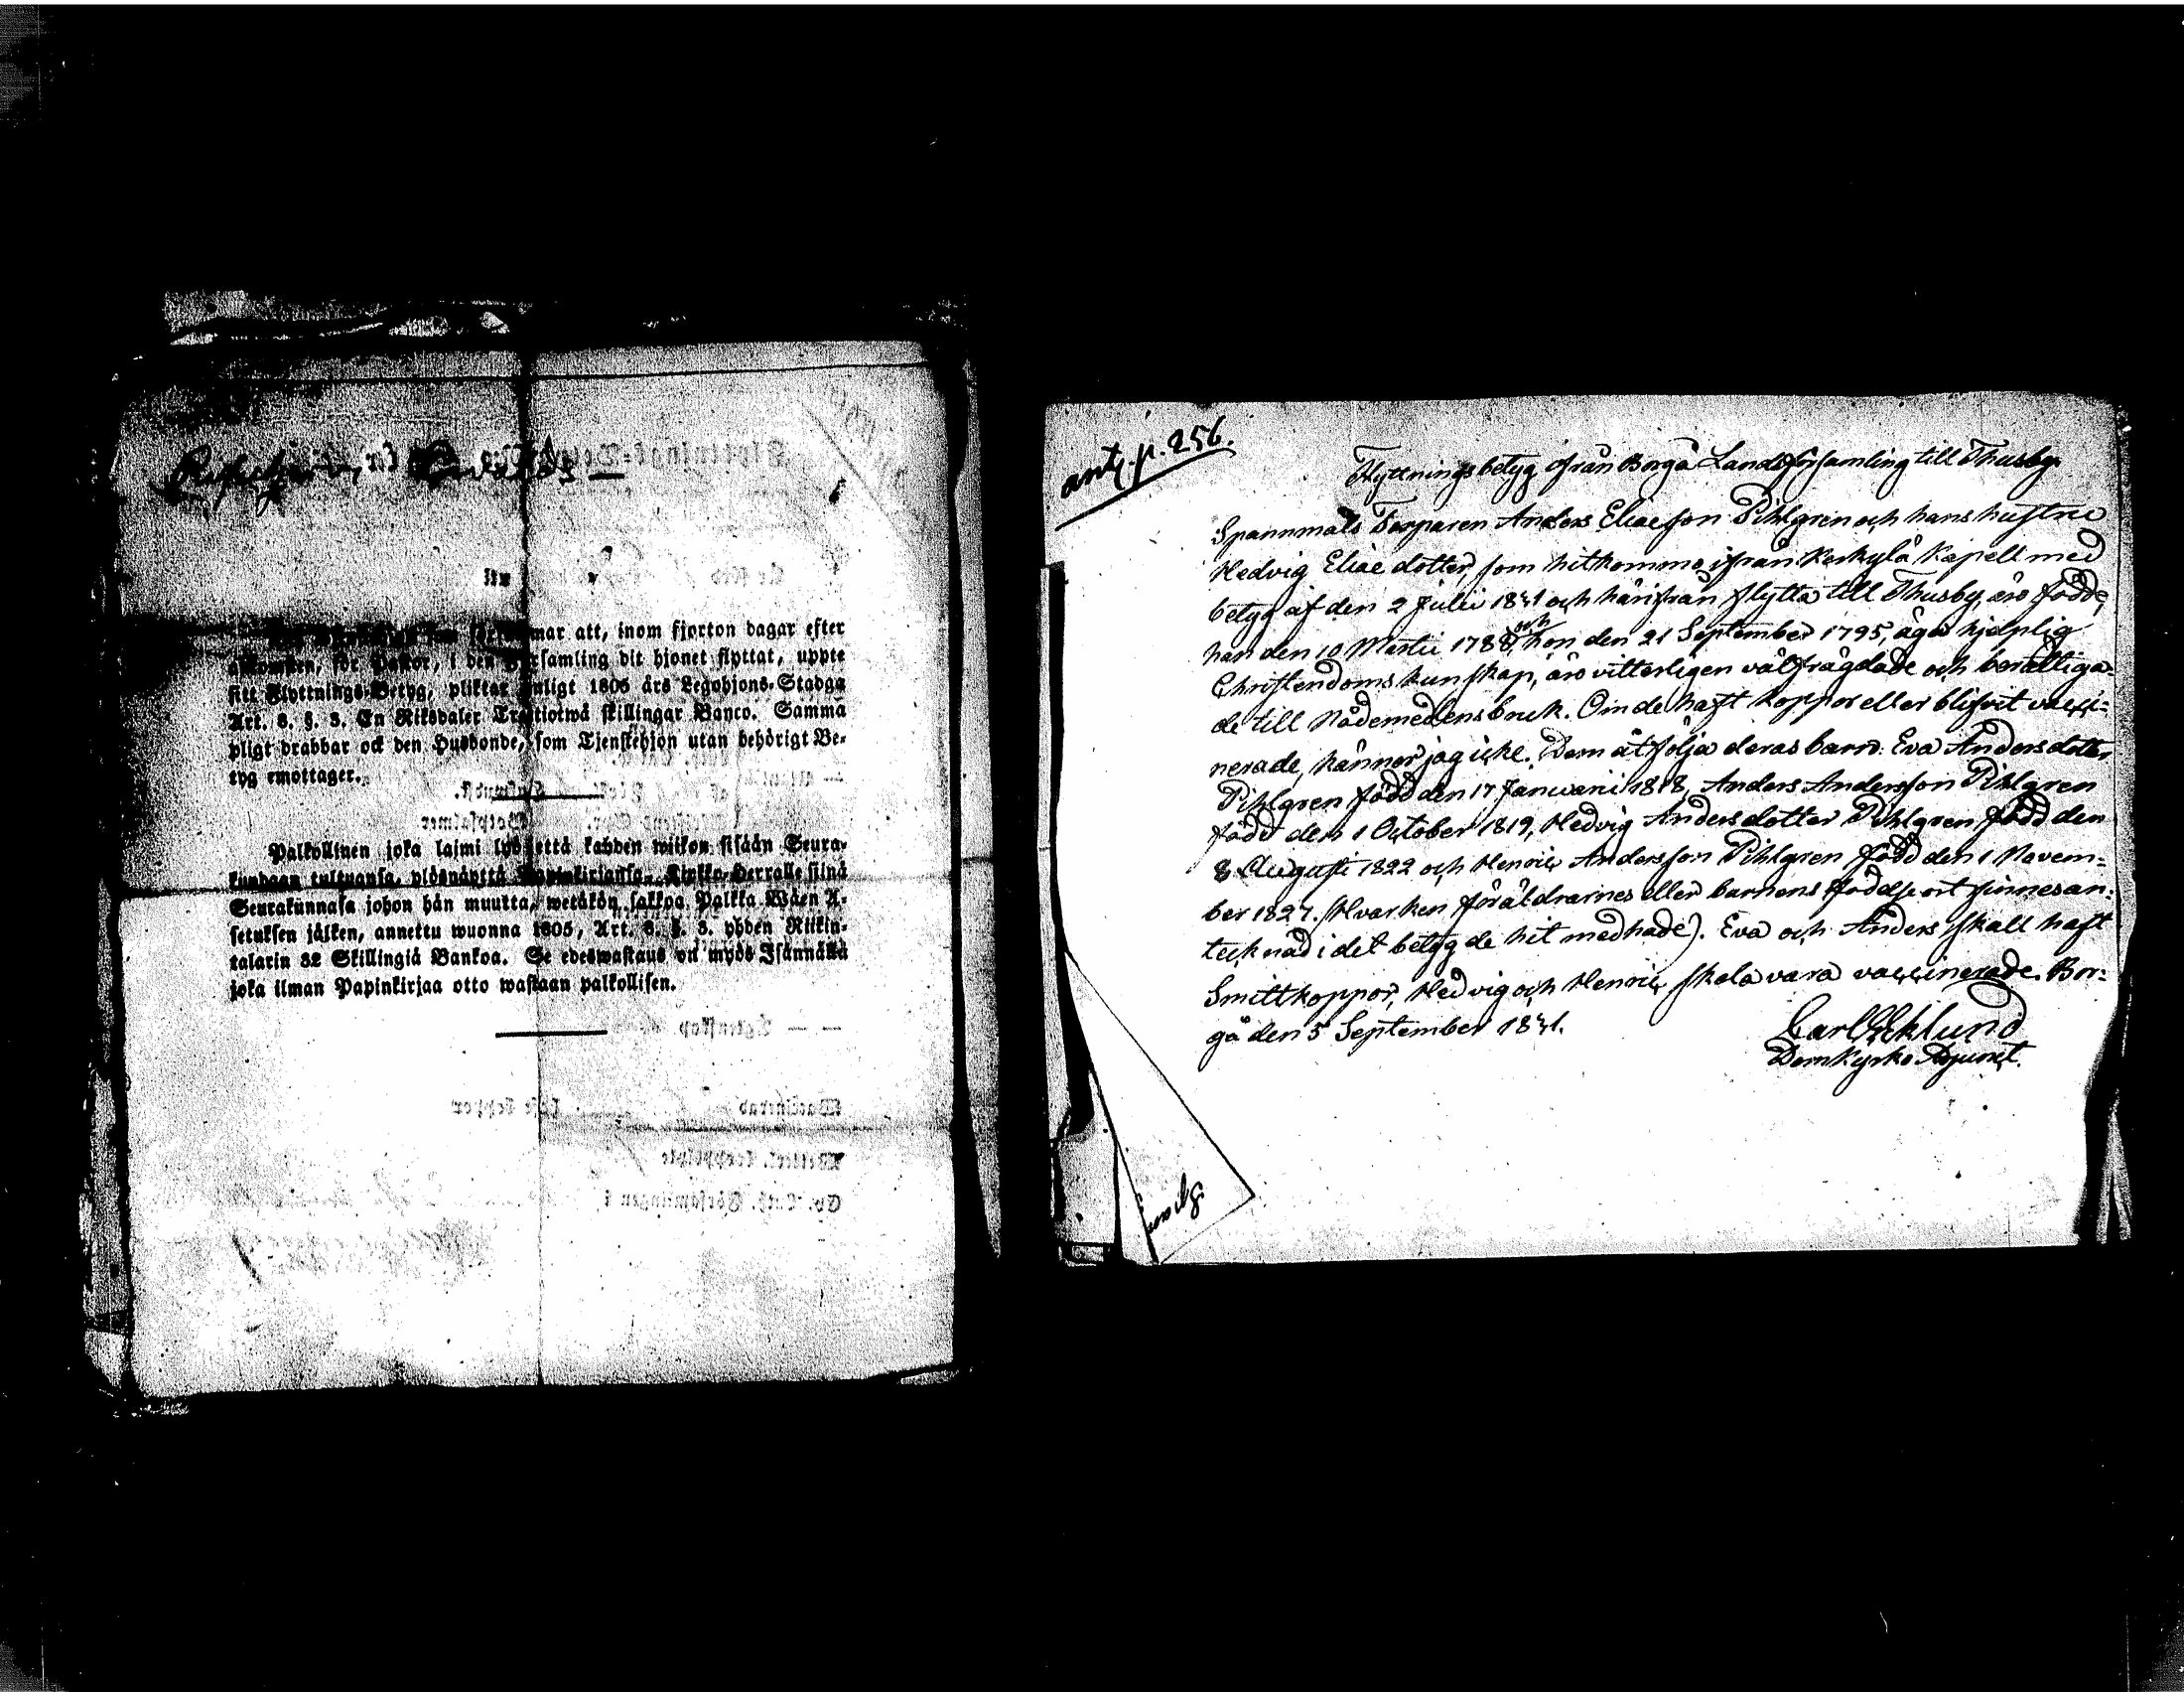 mar att, inom fjorton dagar efter
ankomsten, för Pastor, i den Församling dit hjonet flyttat, uppte
sitt Flyttnings-Betyg, pliktar enligt 1805 års Legohjons-Stadga
Art. 8. §. 3. En Riksdaler Trettiotwå skillingar Banco. Samma
pligt drabbar ock den Husbonde, som Tjenstehjon utan behörigt Be-
tyg emottager.
Palkollinen joka laimi lyö, että kahden wiikon sisään Seura-
kundaan tultuansa, ylösnäyttä Papinkirjansa Kirkko-Herralle siinä
Seurakunnasa johon hän muutta, wetäkön sakkoa Palkka Wäen A-
setuksen jälken, annettu wuonna 1805, Art. 8. §. 3. yhden Riikin-
talarin 32 Skillingiä Bankoa. Se edeswastaus on myös Isännällä
joka ilman Papinkirjaa otto wastaan palkollisen.
ant. p. 256.
Flyttningsbetyg ifrån Borgå Landsförsamling till Thusby.
Spannmåls Torparen Anders Eliaesson Pihlgren och hans hustru
Hedvig Eliæ dotter, som hitkommo ifrån Kerkylä Kapell med
betyg af den 2 Julii 1841 och härifrån flytta till Thusby, äro födde,
han den 10 Martii 1788, och hon den 21 September 1795, äga hjelplig
Christendoms kunskap, äro vitterligen välfrägdade och berättiga-
de till Nådemedlens bruk. Om de haft koppor eller blifvit vacci-
nerade, känner jag icke. Dem åtfölja deras barn: Eva Andersdotter
Pihlgren född den 17 Januarii 1818, Anders Andersson Pihlgren
född den 1 October 1819, Hedvig Andersdotter Pihlgren född den
8 Augusti 1822 och Henric Andersson Pihlgren född den 1 Novem-
ber 1827. (Hvarken föräldrarnes eller barnens födelse ort finnes an-
tecknad i det betyg de hit medhade). Eva och Anders skall haft
Smittkoppor, Hedvig och Henric skola vara vaccinerade. Bor-
gå den 5 September 1841.
Carl Eklund
Domkyrko Adjunct.